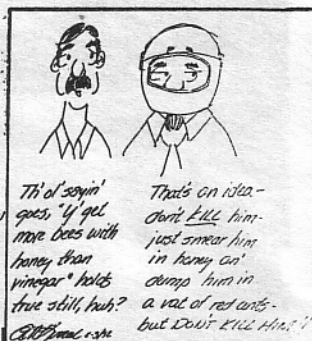 Th' ol' sayin'
goes, "y' get
more bees with
honey than
vinegar" holds
true still, huh?
That's an idea-
don't KILL him-
just smear him
in honey an'
dump him in
a vat of red ants-
but DON'T KILL HIM!!